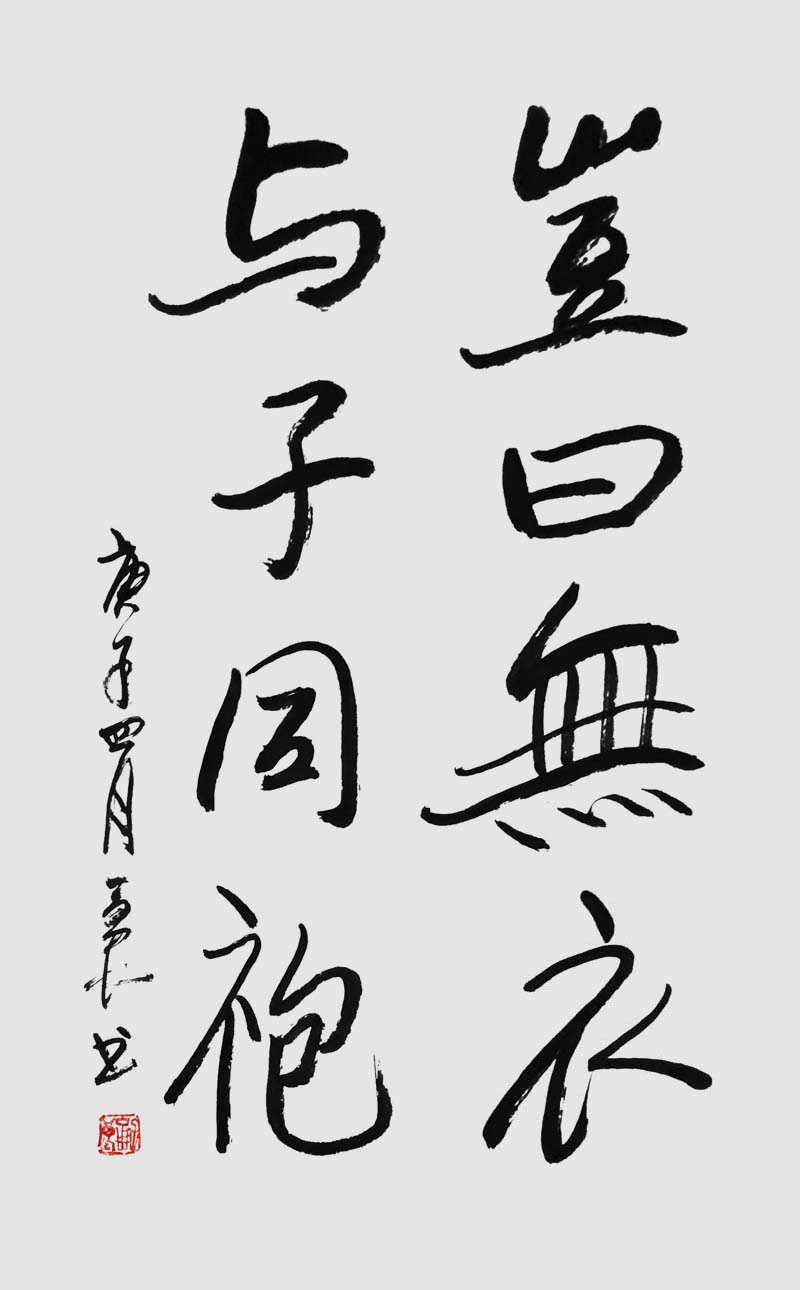 豈曰無衣
与子同袍
庚子四月
书